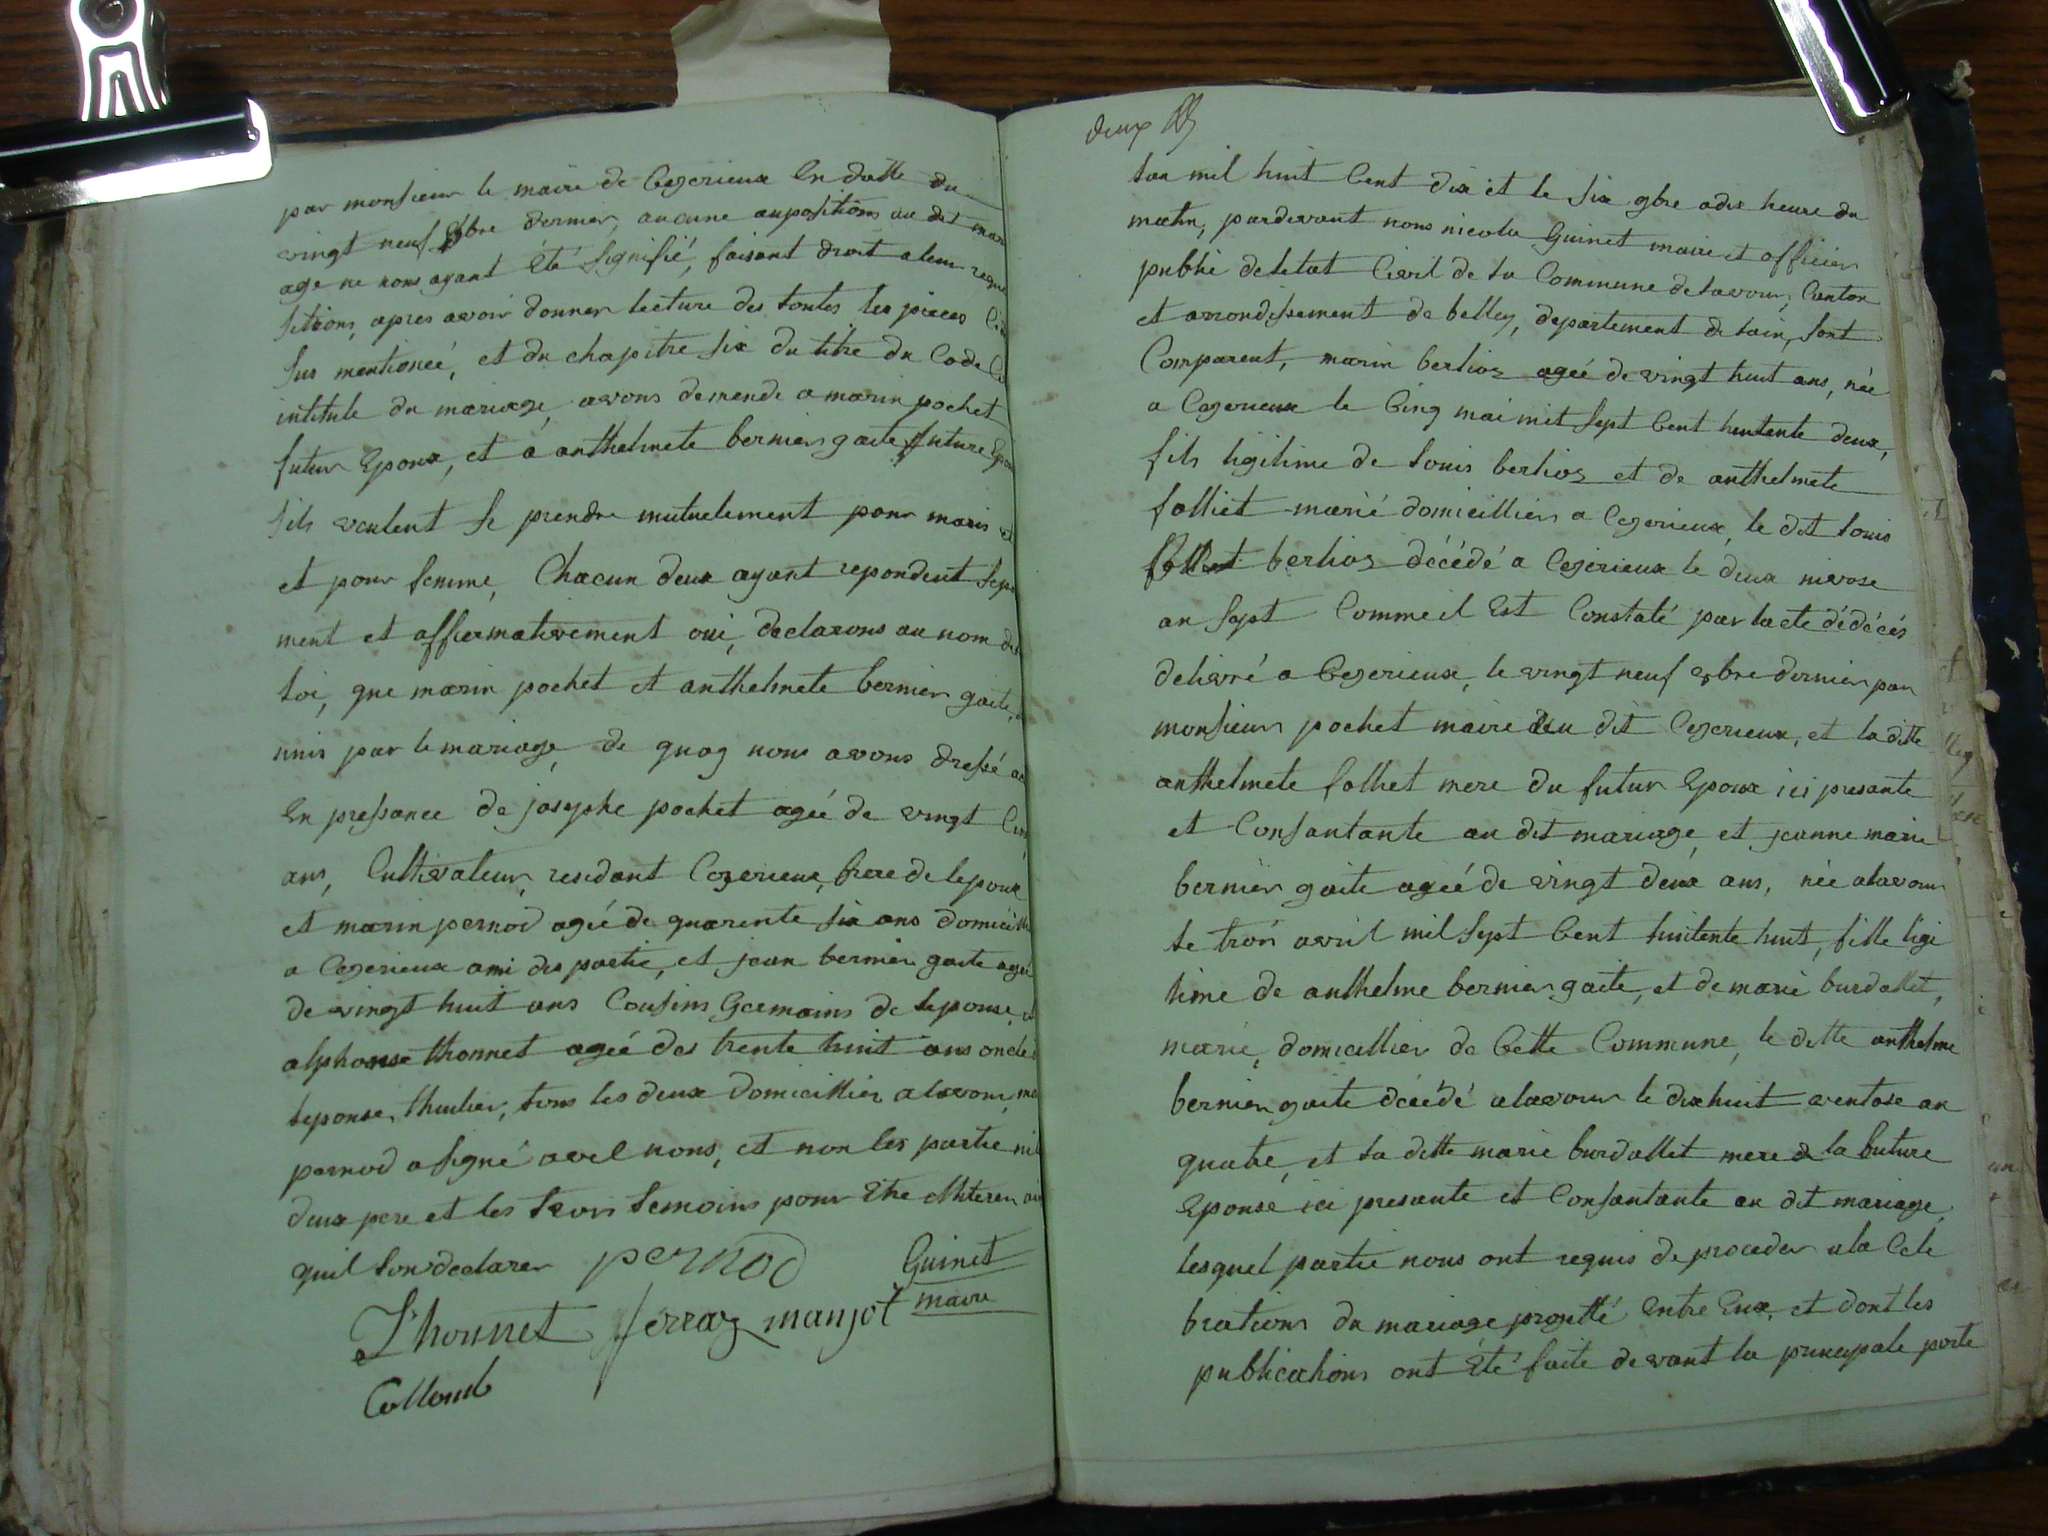 par monsieur le maire de Cezerieux En datte du
vingt neuf 8bre dernier, aucune aupositions au dit mari
age ne nous ayant Eté signifié, faisant droit a leur requi
sitions, apres avoir donner lecture des toutes les pieces Ci
sus mentioneé, et du chapitre six du titre du Code Ci
intitule du mariage, avons demende a marin pochet
futur Epoux, et a anthelmete bernier gaite future Epou
sils veulent se prendre mutuelement pour maris et
et pour femme, Chacun deux ayant repondeut sepa
ment et affiermativement oui, declarons au nom de
loi, que marin pochet et anthelmete bernier gaite,
unis par le mariage, de quoy nous avons dressé a
En pressance de josephe pochet ageé de vingt Cin
ans, Cultivateur, residant Cezerieux, frere de lepoux
et marin pernod ageé de quarente six ans domicilli
a Cezerieux ami des partie, et jean bernier gaite ageé
de vingt huit ans Cousins Germains de lepouse, et
alphonse thonnet ageé des trente huit ans oncle
leponse, thuilier, tous les deux domicillier a lavour, ma
pernod a signé avel nous, et non les partie, ni
deux pere et les trois temoins pour Etre illiterer au
quil son declarer pernod Guinet
maire
Thonnet ferraz manjot
Collomb
deux
Lan mil huit Cent dix et le six 9bre a dix heure du
matin, pardevant nous nicolas Guinet maire et officier
public de letat Civil de la Commune de lavour, Canton
et arrondissement de belley, departement de lain, sont
Comparent, marin berlioz ageé de vingt huit ans, née
a Cezerieux le Cinq mai mil sept Cent huitente deux,
fils ligitime de louis berlioz et de anthelmete
folliet marié domicillier a Cezerieux, le dit louis
folliet berlioz décédé a Cezerieux le deux nivose
an sept Comme il Est Constaté par lacte dédécés
delivré a Cezerieux, le vingt neuf 8bre dernier par
monsieur pochet maire du dit Cezerieux, et la ditte
anthelmete folliet mere du futur Epoux ici presante
et Consantante au dit mariage, et jeanne marie
bernier gaite ageé de vingt deux ans, née a lavour
le troi avril mil sept Cent huitente huit, fille ligi
time de anthelme bernier gaite, et de marie burdallet,
marié, domicillier de Cette Commune, le ditte anthelme
bernier gaite décédé a lavour le dixhuit ventose an
quatre, et la ditte marie burdallet mere de la buture
Epouse ici presante et Consantante au dit mariage,
lesquel partie nous ont requis de proceder a la Cele
brations du mariage projetté Entre Eux, et dont les
publications ont Eté faite devant la principale porte